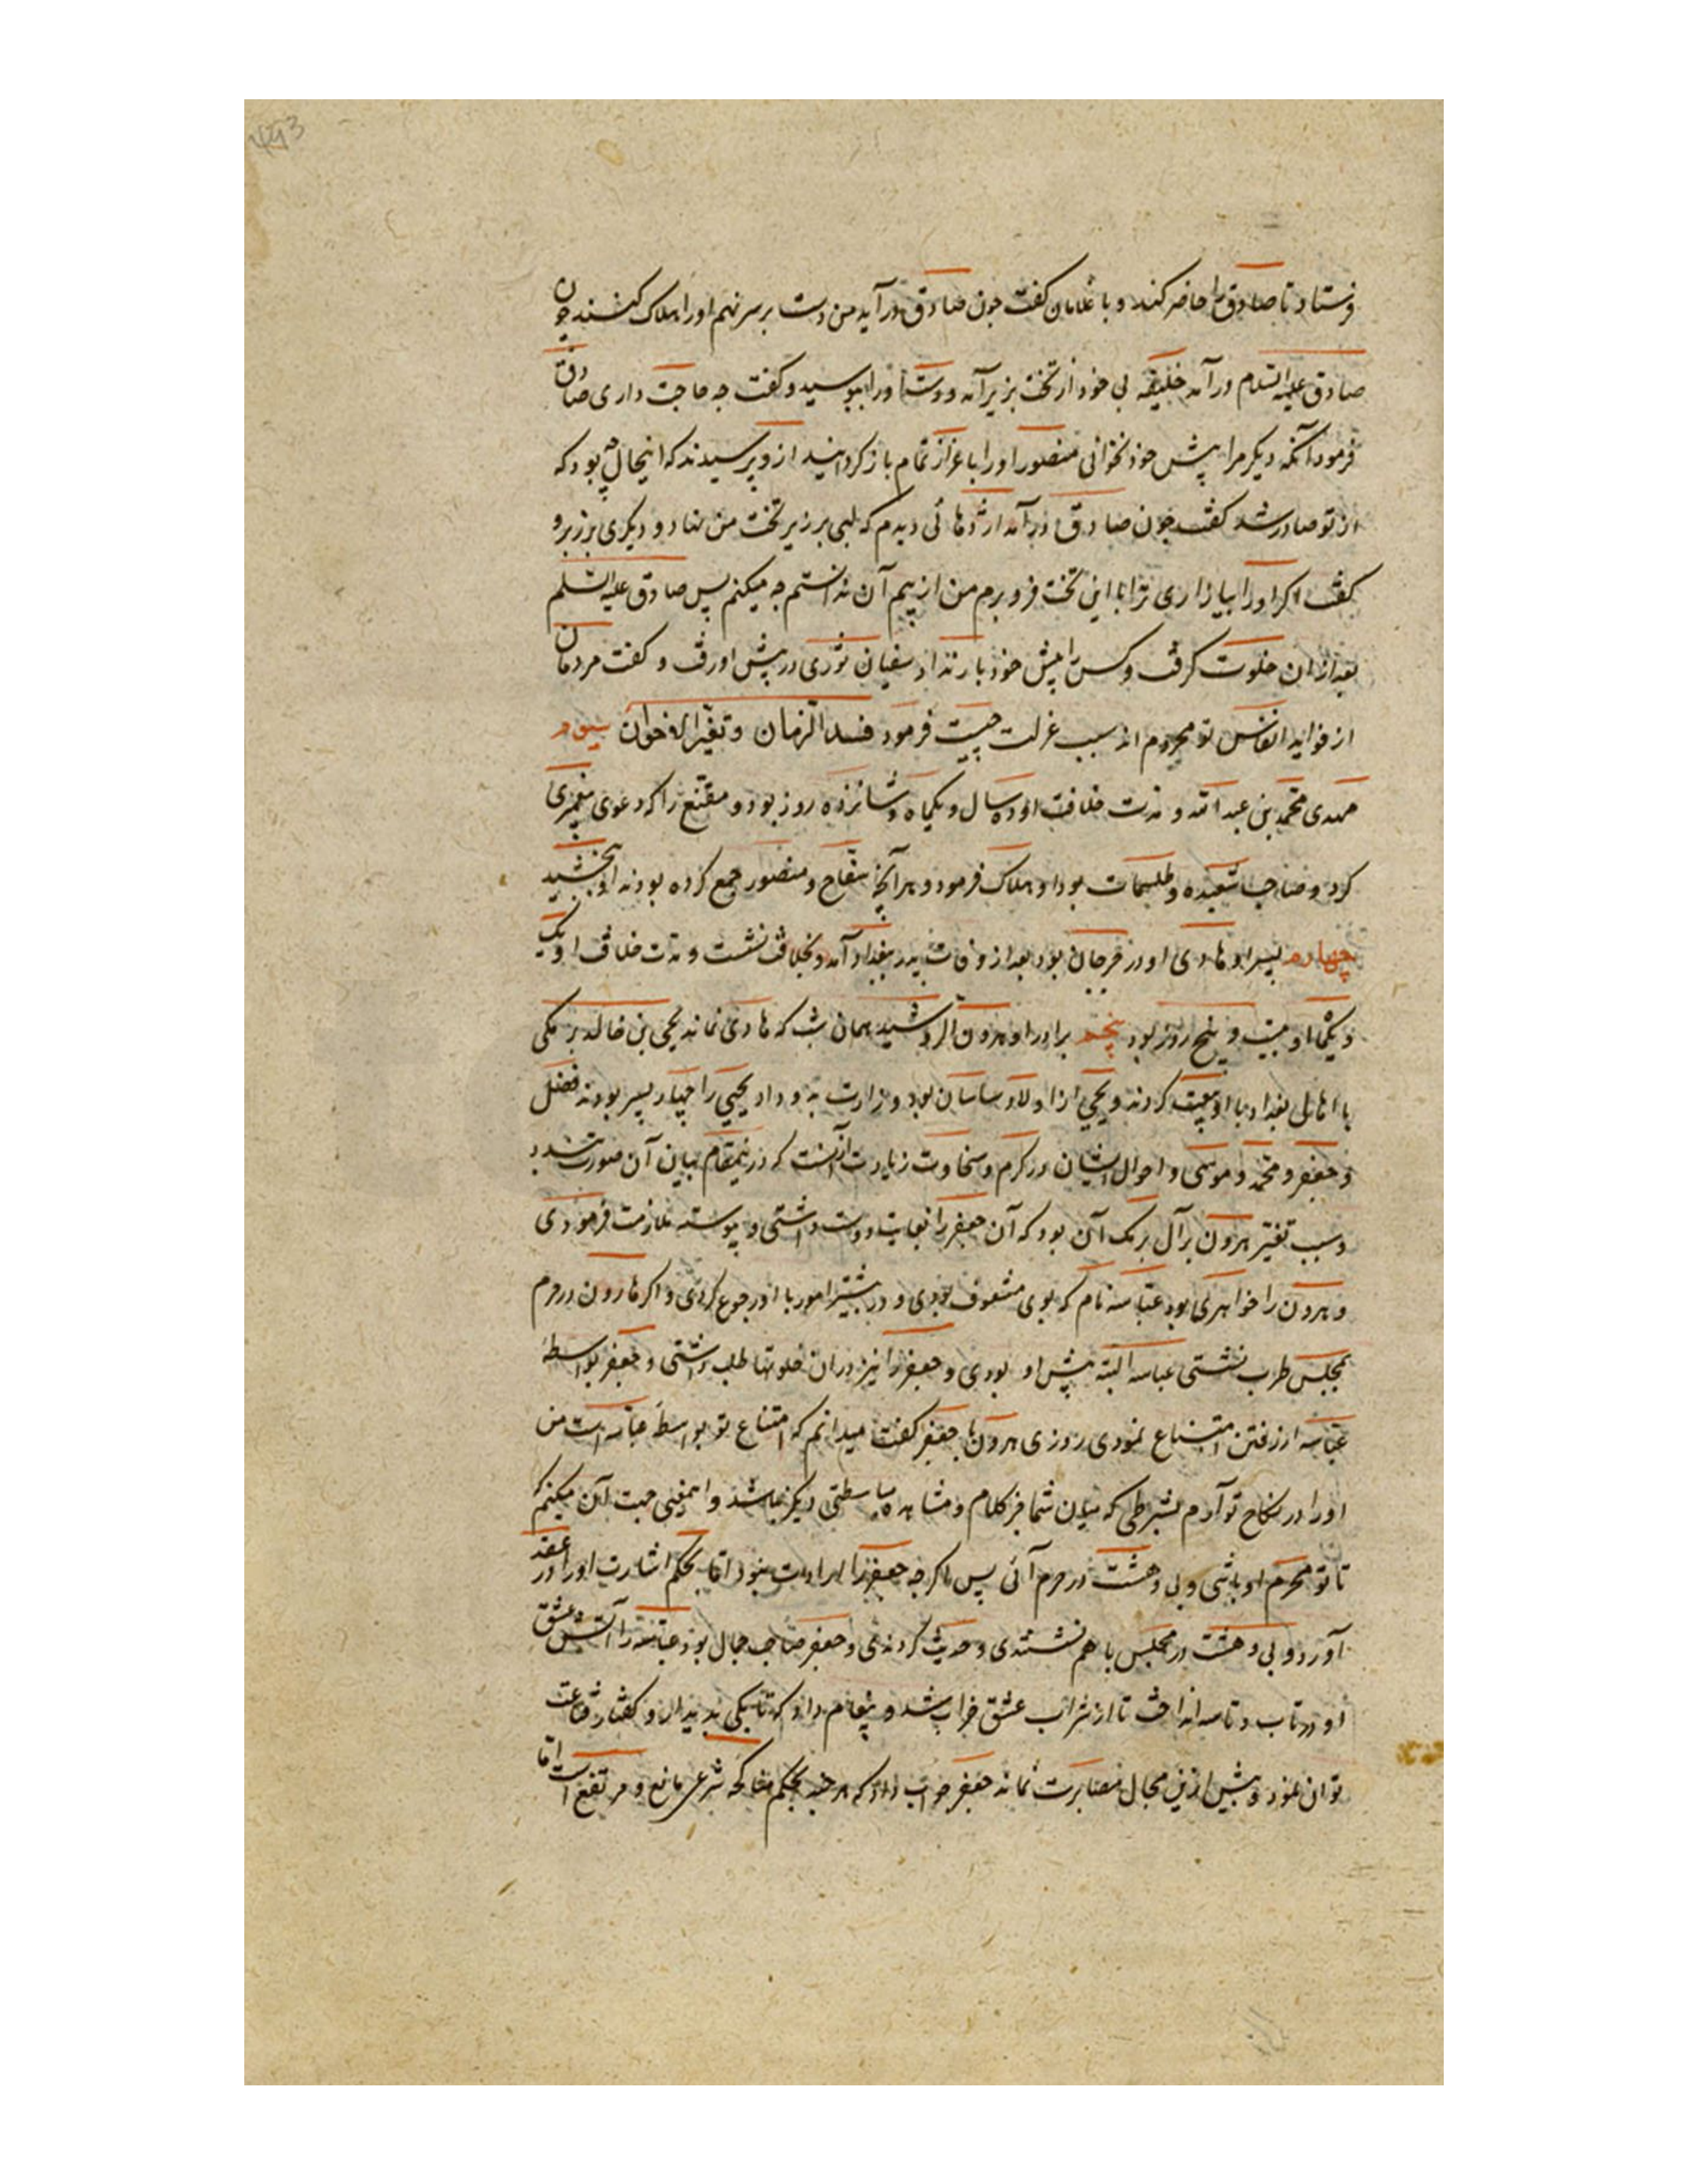 فرستاد تا صادق را حاضر کند و با غلامان کفت جون صادق درآید من دست بر سر نهم او را هلاک کنید جون
صادق علیه السلام درآمد خلیفه بی خود از تخت بزیر آمد و دست او را ببوسید و کفت جه حاجت داری صادق
فرمود آنکه دیکر مرا پیش خود نخوانی منصور او را باعزاز تمام باز کردانید ازو پرسیدند که اینحال چه بود که
از تو صادر شد کفت جون صادق درآمد اژدهائی دیدم که لبی بر زیر تخت من نهاد و دیکری بر زبر و
کفت اکر او را بیازاری ترا با این تخت فرو برم من از بیم آن ندانستم جه میکنم پس صادق علیه السلم
بعد از ان خلوت کرفت و کس را پیش خود بار نداد سفیان ثوری در پیش او رفت و کفت مردمان
از فواید انفاس تو محروم اند سبب عزلت چیست فرمود فسد الزمان و تغیر الاخوان سیوم
مهدی محمد بن عبد الله و مدت خلافت او ده سال و یکماه و شانزده روز بود و مقنع را که دعوی پیغمبری
کرد و صاحب شعبده و طلسمات بود او هلاک فرمود و هر آنچه سفاح و منصور جمع کرده بودند او ببخشید
چهارم پسر او هادی او در جرجان بود بعد از وفات پدر ببغداد آمد و بخلافت نشست و مدت خلافت او یک
و یکماه و بیست و پنج روز بود پنجم برادر او هرون الرشید همان شب که هادی نماند یحیی بن خالد برمکی
با اهالی بغداد با او بیعت کردند و یحیی از اولاد ساسان بود وزارت بدو داد یحیی را چهار پسر بودند فضل
و جعفر و محمد و موسی و احوال ایشان در کرم و سخاوت زیادت از آنست که درینمقام بیان آن صورت بندد
و سبب تغیر هرون بر آل برمک آن بود که آن جعفر را بغایت دوست داشتی و پیوسته ملازمت فرمودی
و هرون را خواهری بود عباسه نام که بوی مشعوف بودی و در بیشتر امور با او رجوع کردی و اکر هارون در حرم
بمجلس طرب نشستی عباسه البته پیش او بودی و جعفر را نیز در ان خلوتها طلب داشتی و جعفر بواسطهٔ
عباسه از رفتن امتناع نمودی روزی هرون با جعفر کفت میدانم که امتناع تو بواسطهٔ عباسه است من
او را در نکاح تو آدرم بشرطی که میان شما جز کلام و مشاهده باسطتی دیکر نباشد و اینمعنی جهت آن میکنم که
تا تو محرم او باشی و بی دهشت در حرم آئی پس اکرجه جعفر را ارادت نبود اما بحکم اشارت او را در عقد
آورد و بی دهشت در مجلس با هم نشستندی و حدیث کردندی و جعفر صاحب جمال بود عباسه را آتش عشق
او در تاب و تاسه انداخت تا از شراب عشق خراب شد و پیغام داد که تا بکی بدیدار و کفتار قناعت
توان نمود و بیش ازین مجال مصابرت نماند جعفر جواب داد که هرجند بحکم مناکحه شرعی مانع مرتفع است اما